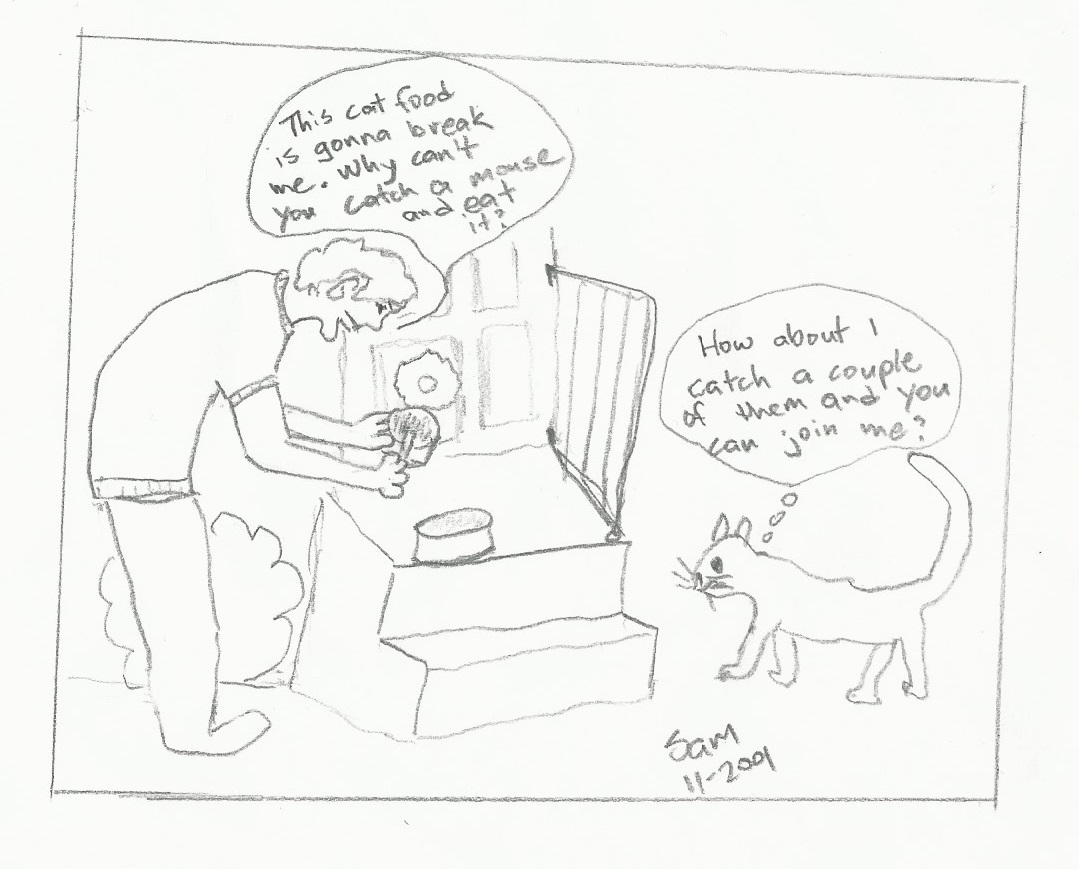 This cat food
is gonna break
me. Why can't
you catch a mouse
and eat
it?
How about I
catch a couple
of them and you
can join me?
Sam
11-2001